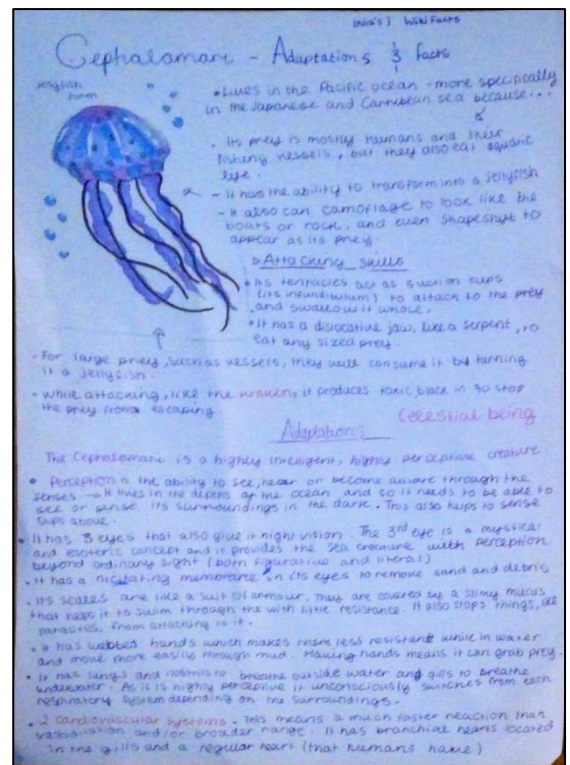 (Nia's) Wiki Facts
Cephalomari - Adaptations & Facts
Jellyfish form
• Lives in the Pacific ocean - more specifically
in the Japanese and Carribean sea because...
• Its prey is mostly humans and their
fishing vessels, but they also eat aquatic
life.
- It has the ability to transform into a Jellyfish
- It also can camoflage to look like the
boats or rock, and even shapeshift to
appear as its prey.
Attacking skills
• Its tentacles act as suction cups
(its infundibulum) to attach to the prey
and swallow it whole.
• It has a dislocative jaw, like a serpent, to
eat any sized prey.
- For large prey, such as vessels, they will consume it by turning
it a Jellyfish.
- While attacking, like the kraken, it produces toxic black in to stop
the prey from escaping.
Celestial being
Adaptations
The Cephalomari is a highly intelligent, highly perceptive creature.
• Perception is the ability to see, hear or become aware through the
senses → It lives in the depths of the ocean and so it needs to be able to
see or sense its surroundings in the dark. This also helps to sense
ships above.
• It has 3 eyes that also give it night vision. The 3rd eye is a mystical
and esoteric concept and it provides the sea creature with perception
beyond ordinary sight (both figurative and literal)
• It has a nictating membrane in its eyes to remove sand and debris
• Its scales are like a suit of armour. They are covered by a slimy mucus
that helps it to swim through the with little resistance. It also stops things, like
parasites, from attaching to it.
• It has webbed hands which makes them less resistant while in water
and move more easily through mud. Having hands means it can grab prey.
• It has lungs and nostrils to breathe outside water and gills to breathe
underwater. As it is highly perceptive it unconsciously switches from each
respiratory system depending on the surroundings.
• 2 cardiovascular systems - This means a much faster reaction than
vasodilation and/or broader range. It has branchial hearts located
in the gills and a regular heart (that humans have)